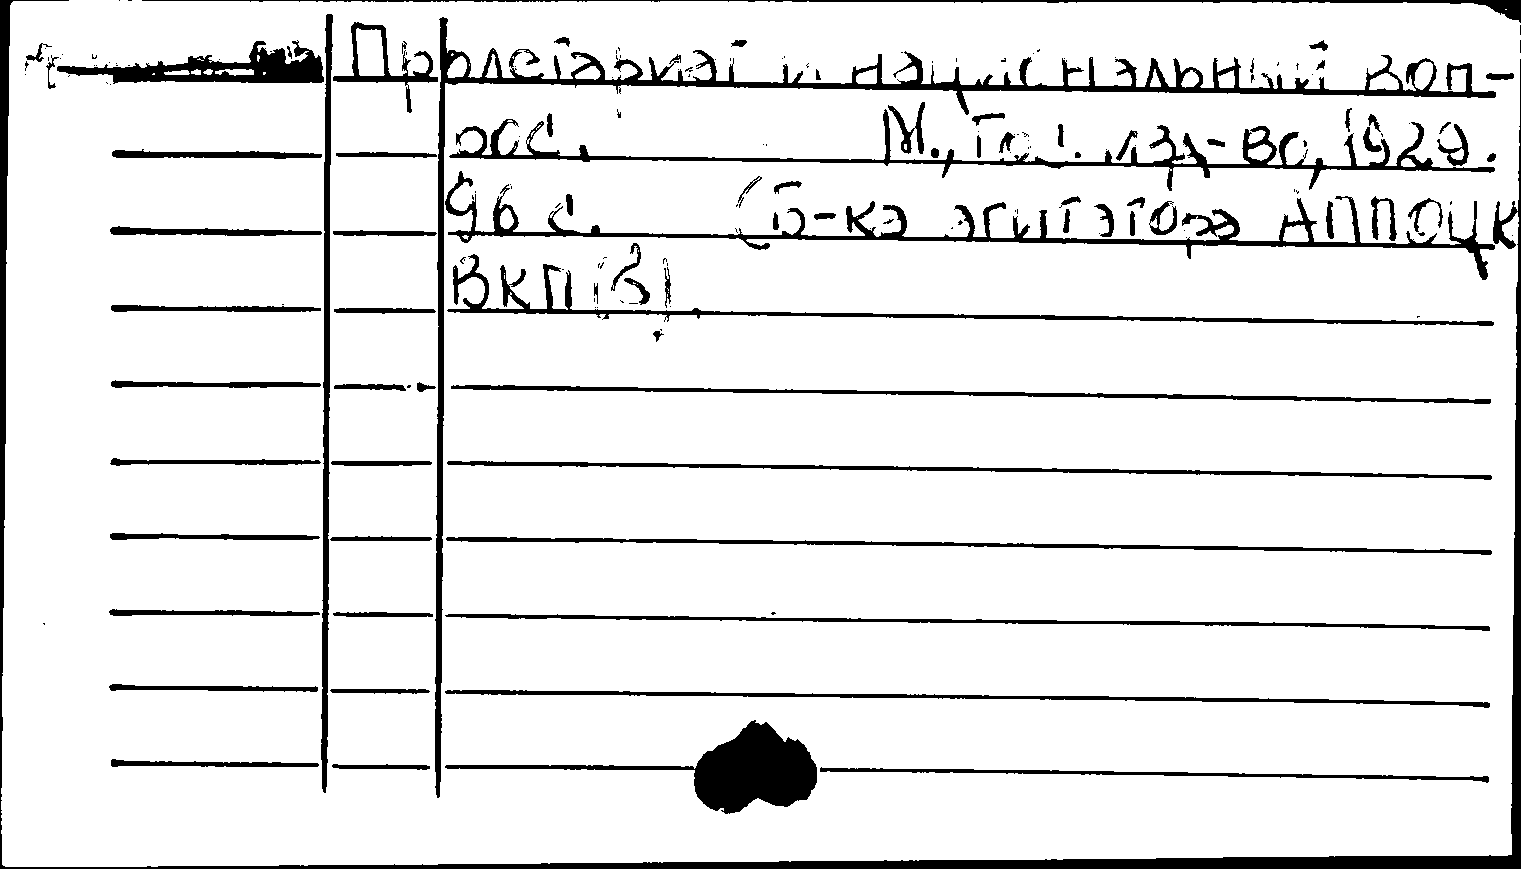 Пролетариат и национальный воп-
рос. М., Гос. изд-во, 1929.
96 с. (Б-ка агитатора АППОЦК
ВКП(б).